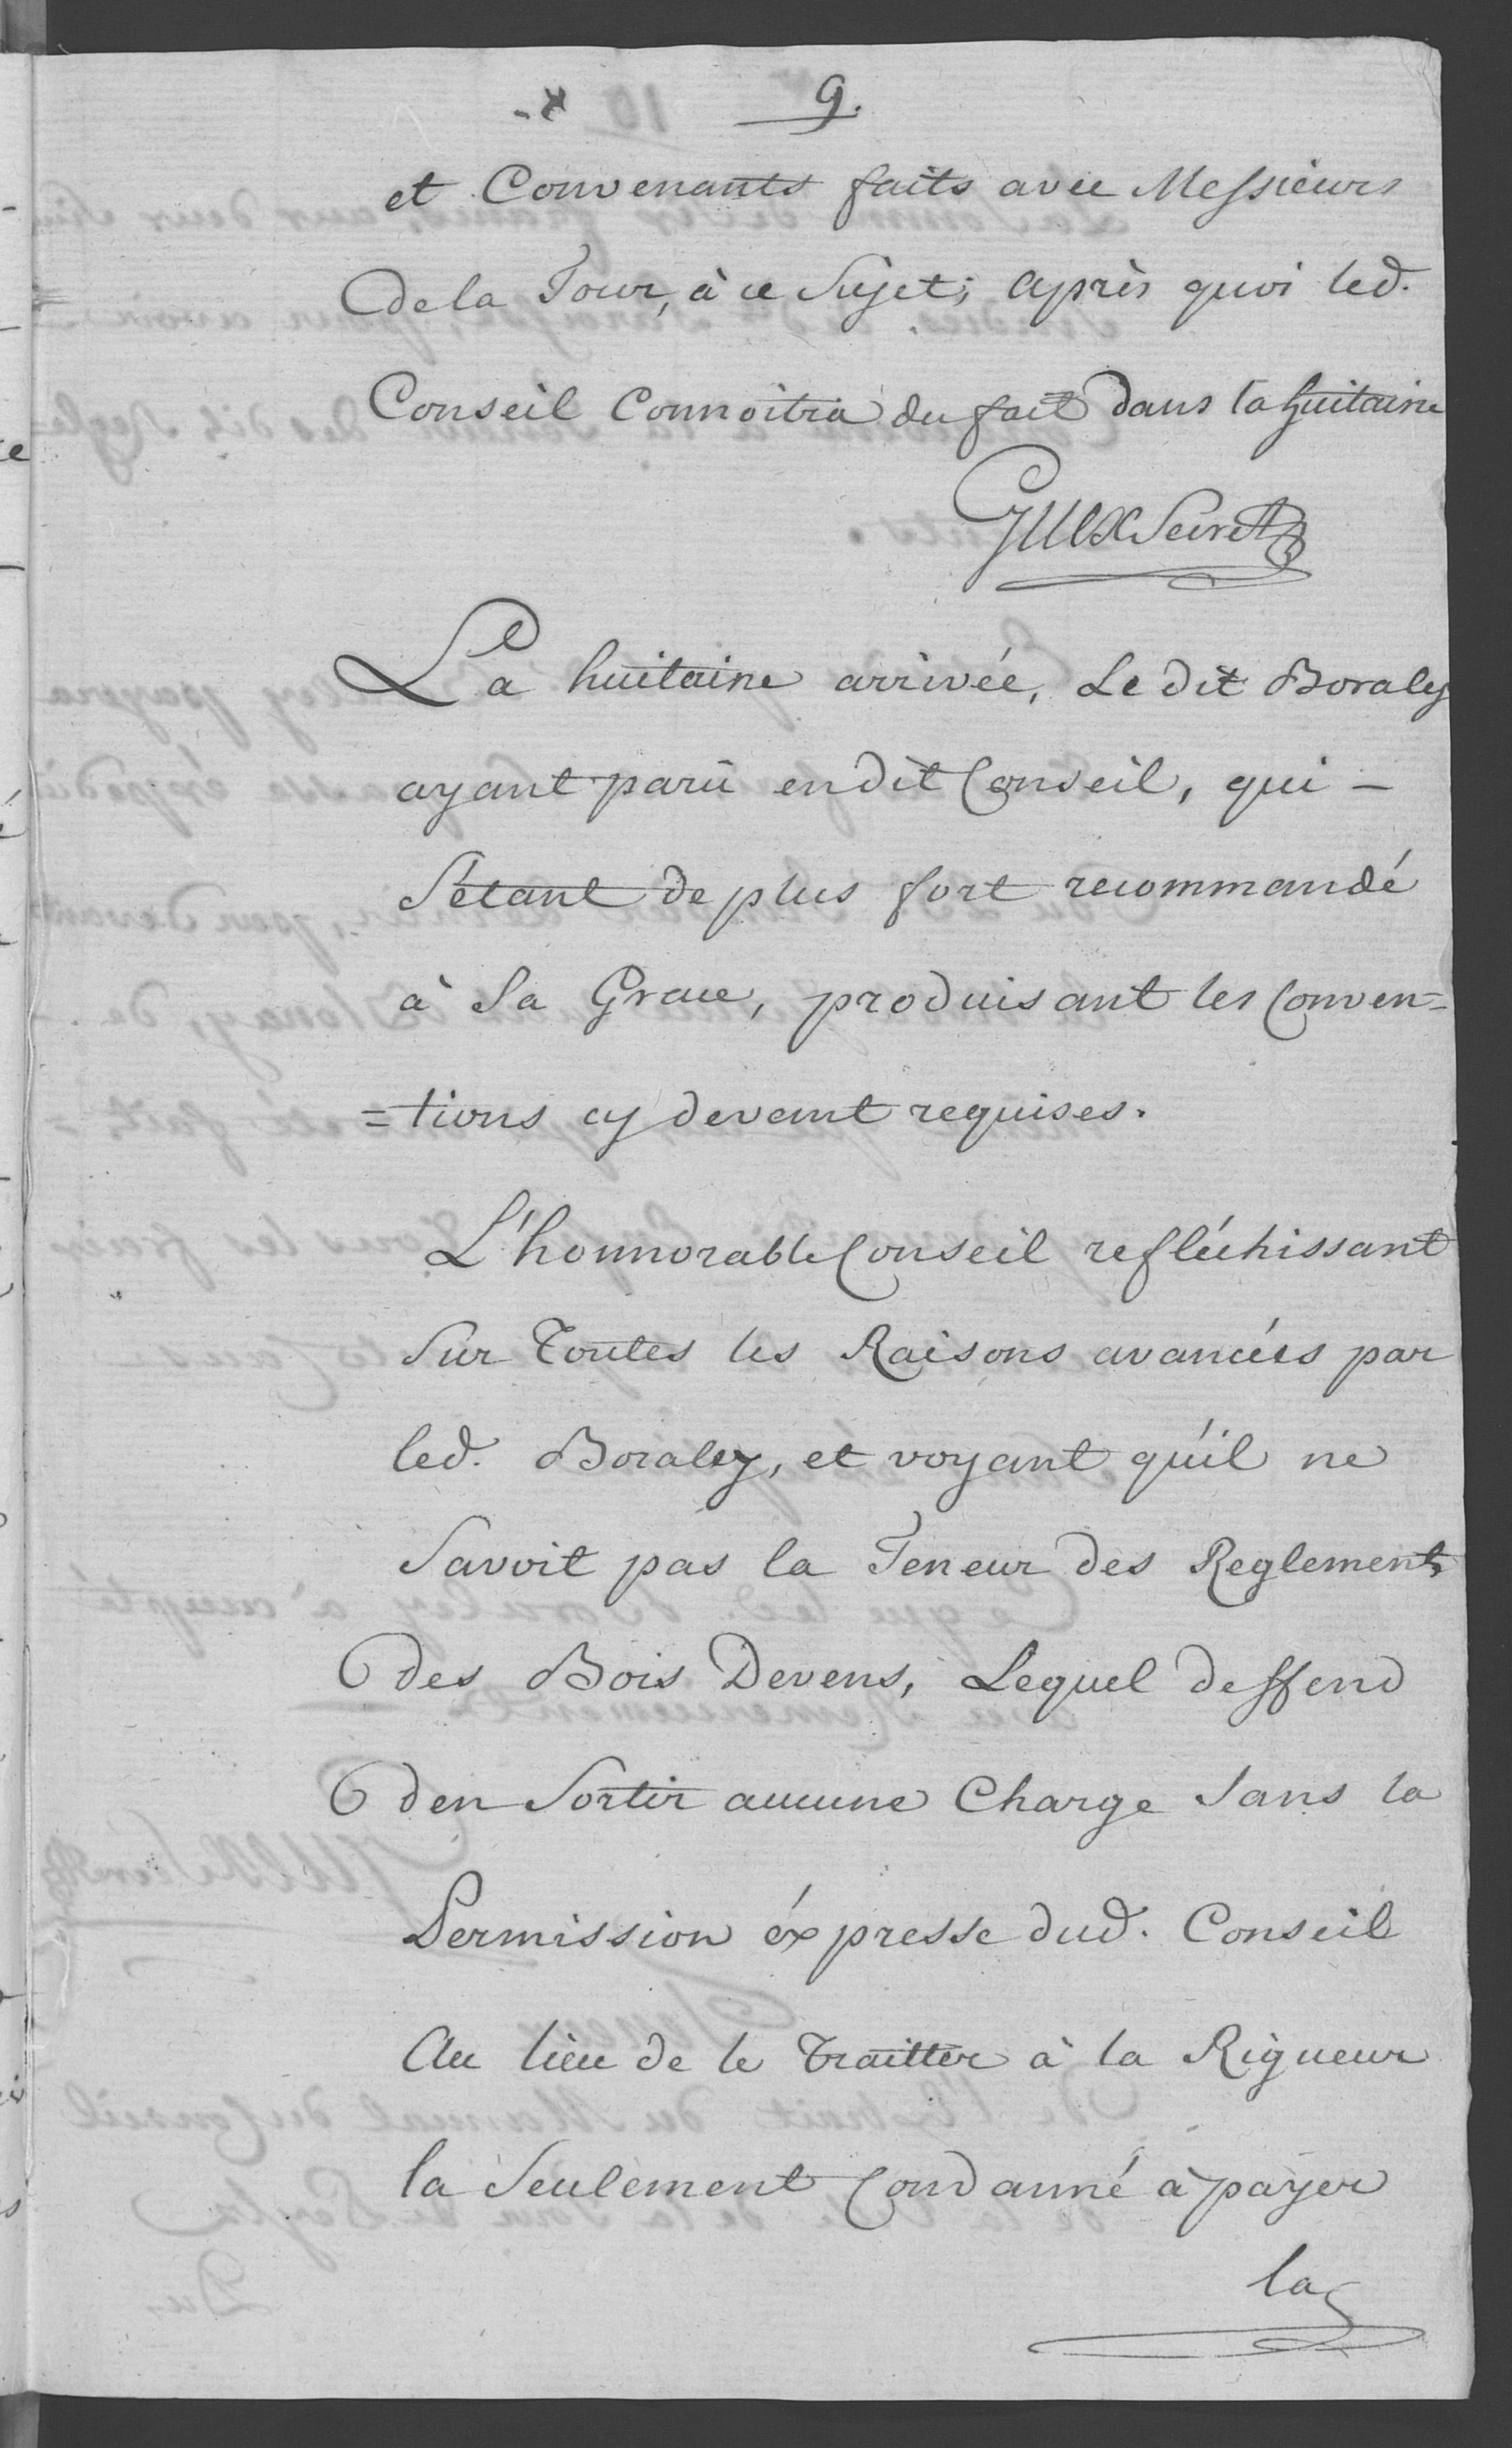 9.
et Convenants faits avec Messieurs
de la Tour, à ce Sujet; après quoi led.
Conseil Connoitra du fait dans la huitaine
Guex Secret
La huitaine arrivée, Le dit Boraley
ayant parû en dit Conseil, qui -
S'étant de plus fort recommandé
à Sa Grace, produisant les Conven=
=tions cy devant requises.
L'honnorable Conseil refléchissant
Sur Toutes les Raisons avancées par
led. Boraley, et voyant qu'il ne
Savoit pas la Teneur des Reglements
des Bois Devens, Lequel deffend
den Sortir aucune Charge Sans la
Permission éxpresse dud. Conseil
Au lieu de le Traitter à la Rigueur
la Seulement Condanné à payer
la